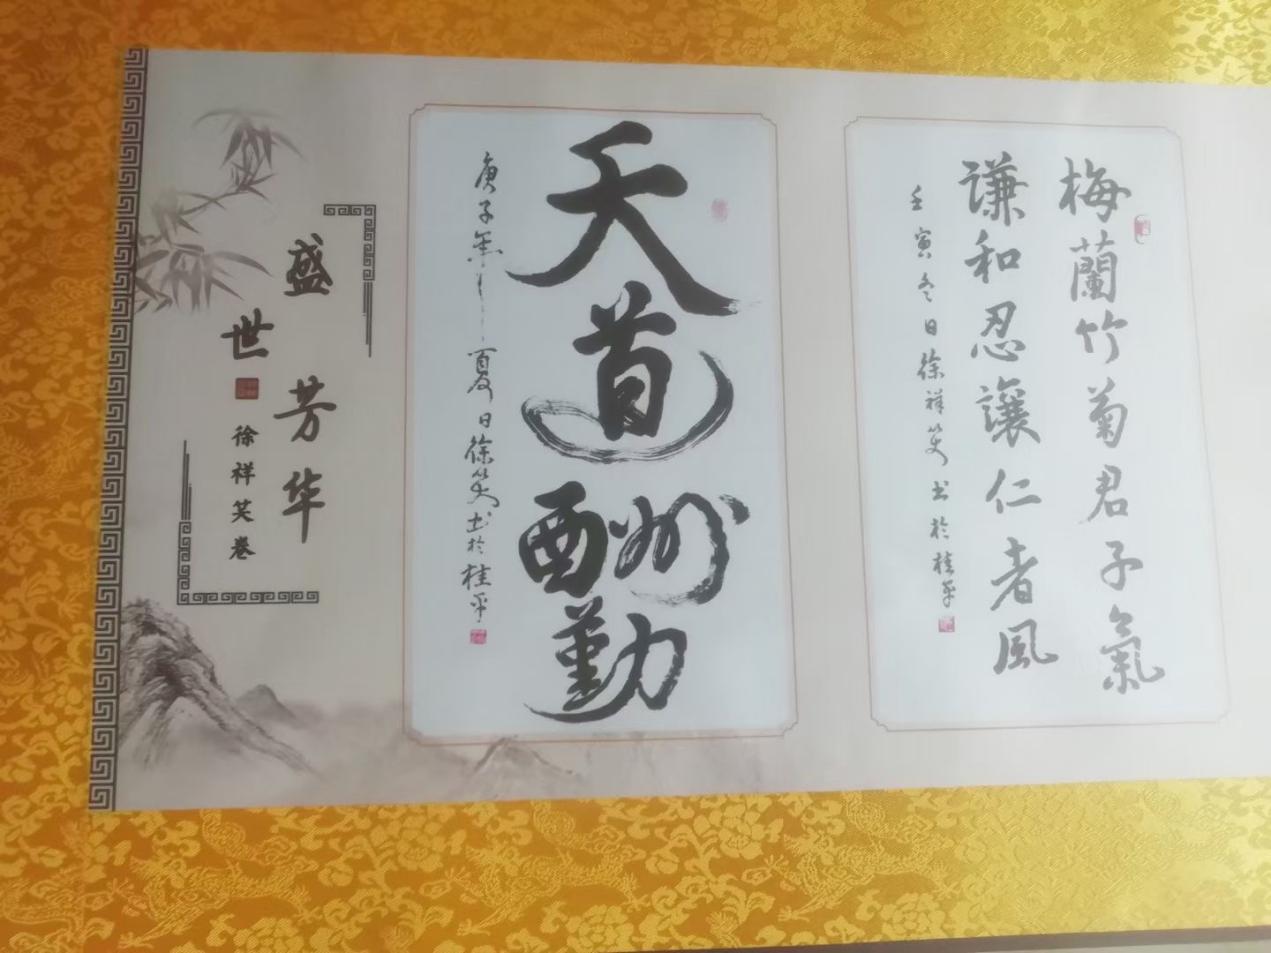 梅蘭竹菊君子氣
謙和忍讓仁者風
壬寅冬日徐祥笑书於桂平
天道酬勤
庚子年夏日徐笑书於桂平
盛世芳华
徐祥笑卷